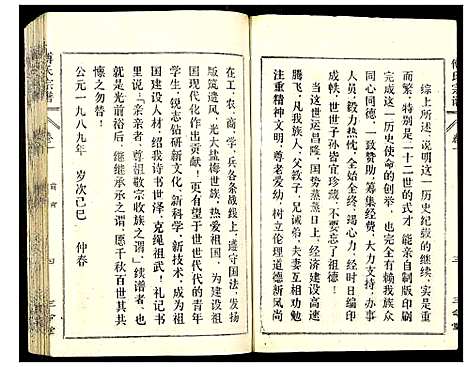 综上所述，说明这一历史纪载的继续，实是重
而繁，特别是二十二世的式才，能亲自制版印刷，
完成这一历史使命的创举，也完全有赖我族人
同心同德，一致赞助，筹集经费，大力支持，办事
人员，毅力热忱，全始全终，竭心力，经时日编印
成帙，世世子孙皆宜珍藏，不可不德！
当此世运昌隆，国势蒸蒸日上，经济建设高速
腾飞，凡我族人，父教子，兄诫弟，夫妻互相劝勉，
注重精神文明，尊老爱幼，树立伦理道德新风尚，
在工、农、商、学、兵各条战线上，遵守国法，发扬
版筑遗风，光大盐梅世业，热爱祖国，为建设祖
国现代化作出贡献！更有望于世世代代的青年
学生，锐志钻研新文化、新科学、新技术，成为祖
国建设人材，绍我诗书世泽，克绳祖武！礼记书
里说：「亲亲者，尊祖敬宗收族之谓」，续谱者，
就是光前裕后，继继承承之谓，愿千秋百世其
懔之勿替！
公元一九八九年 岁次己巳 仲春
傅氏宗谱
卷一
四
傅氏宗谱
卷一